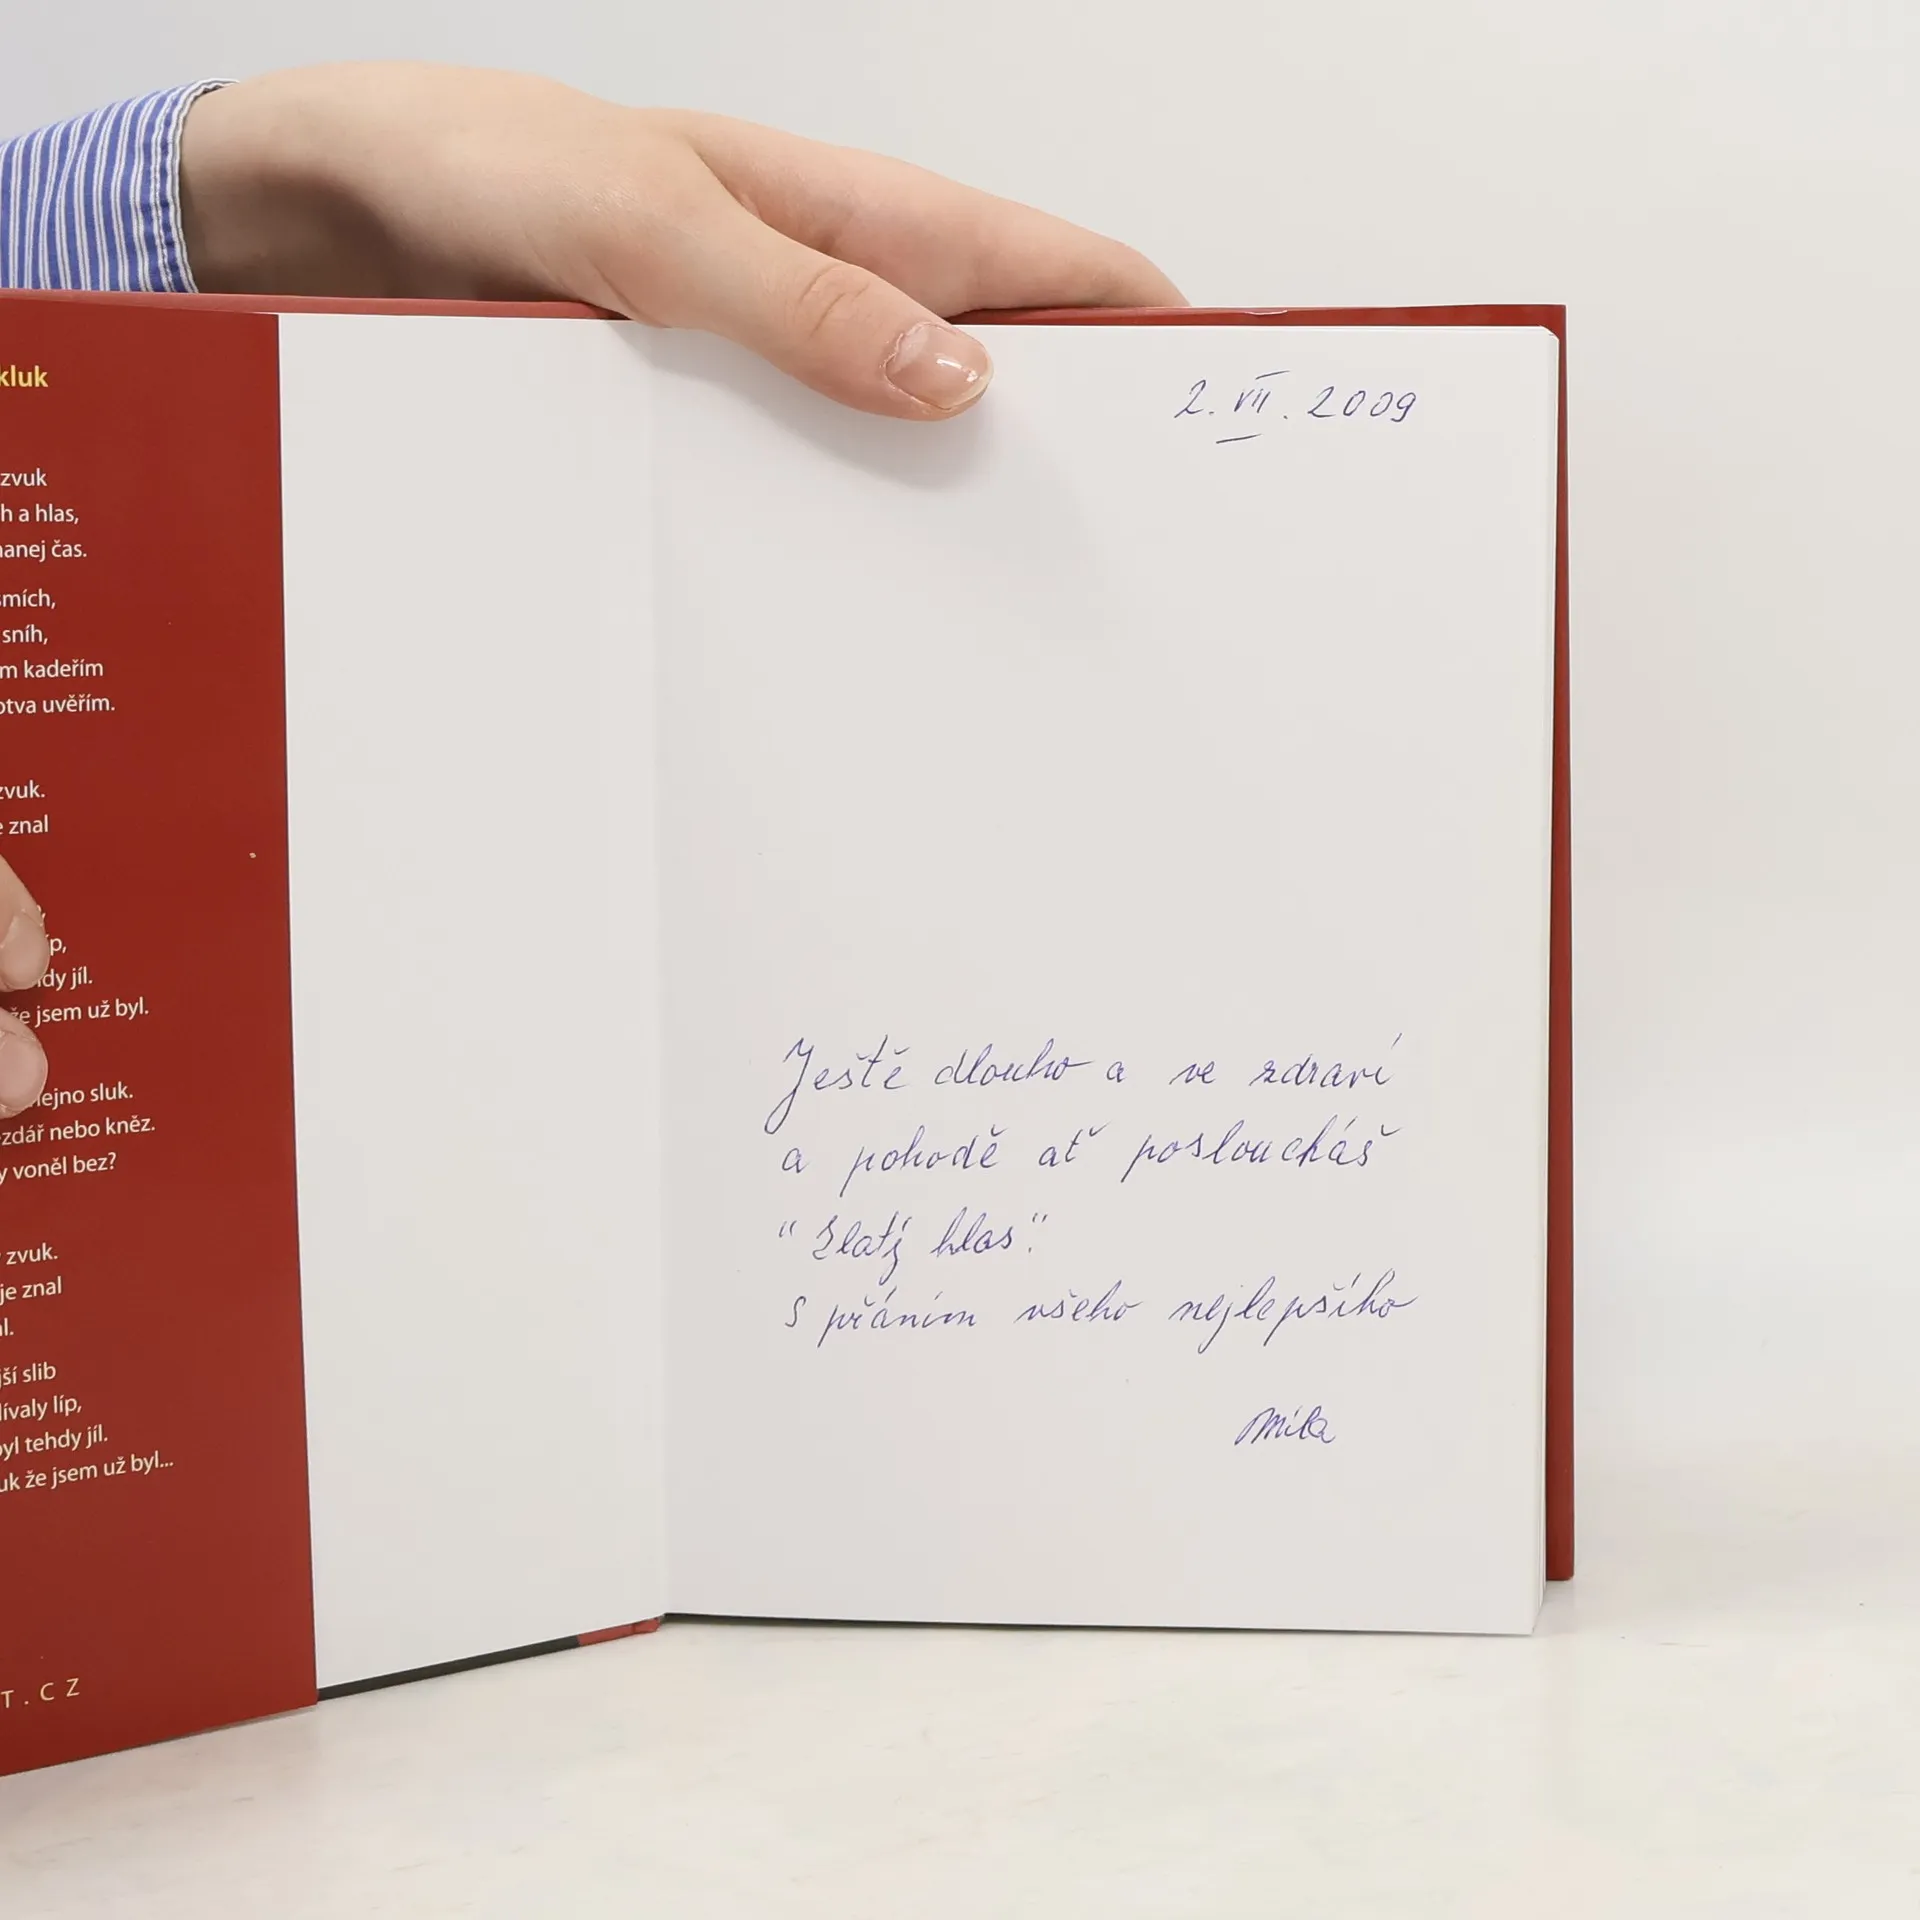 kluk
zvuk
h a hlas,
nanej čas.
smích,
sníh,
m kadeřím
otva uvěřím.
zvuk.
e znal
íp,
dy jíl.
že jsem už byl.
nejno sluk.
zdář nebo kněz.
y voněl bez?
zvuk.
je znal
l.
jší slib
dívaly líp,
byl tehdy jíl.
uk že jsem už byl...
T.CZ
2. VII. 2009
Ještě dlouho a ve zdraví
a pohodě ať posloucháš
"Zlatý hlas".
S přáním všeho nejlepšího
Míla